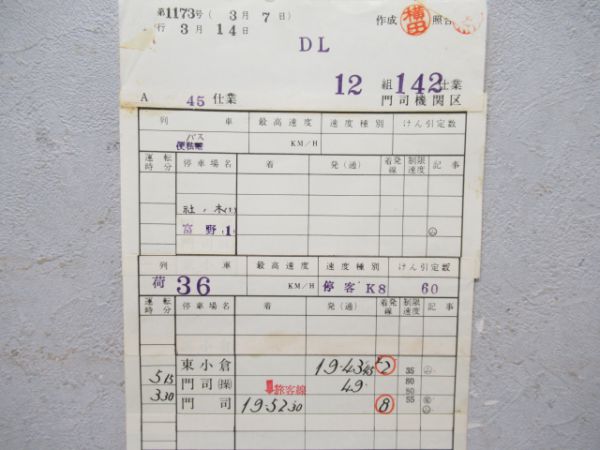 第1173号 ( 3 月 7 日 )
行 3 月 14 日
作成 横田 照合
DL
12 組 142 仕業
A 45 仕業 門司機関区
列 車 最高速度 速度種別 けん引定数
バス
便 KM/H
運転時分 停車場名 着 発(通) 着発線 制限速度 記事
富野(1)
列 車 最高速度 速度種別 けん引定数
荷 36 KM/H 停客 K8 60
運転時分 停車場名 着 発(通) 着発線 制限速度 記事
東小倉 19-43 45 2 35
515 門司(操) 49 80
↓旅客線 50
330 門司 19-52 30 8 55